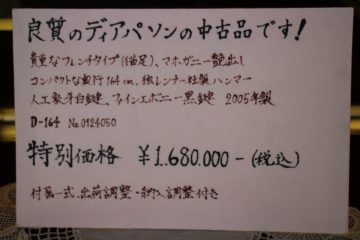 良質のディアパソンの中古品です!
貴重なフレンチタイプ(猫足)、マホガニー艶出し
コンパクトな奥行164cm、独レンナー社製ハンマー
人工象牙白鍵、ファインエボニー黒鍵 2005年製
D-164 No.0124050
特別価格 ¥1,680,000-(税込)
付属一式、出荷調整・納入調整付き